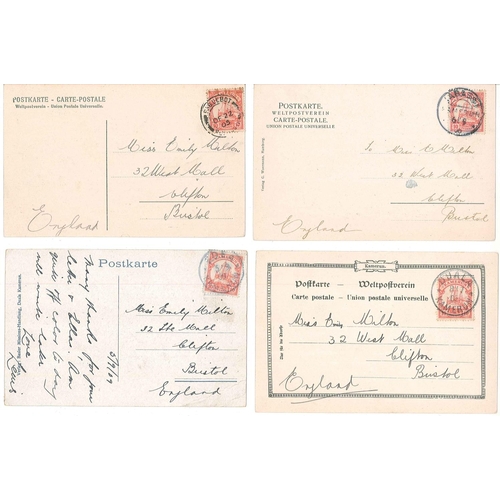 POSTKARTE - CARTE-POSTALE
Weltpostverein - Union Postale Universelle.
Miss Emily Milton
32 West Mall
Clifton
Bristol
England
POSTKARTE.
WELTPOSTVEREIN
CARTE-POSTALE.
UNION POSTALE UNIVERSELLE
Milton
32 West Mall
Clifton
Bristol
England
Postkarte
Many thanks for your
letter
off color to day
will write
Love
Louis
5/9/09
Basler Missions-Handlung, Duala Kamerun.
Miss Emily Milton
32 Mall
Clifton
Bristol
England
Kamerun.
Postkarte — Weltpostverein
Carte postale — Union postale universelle
Nur für die Adresse
Miss Emily Milton
32 West Mall
Clifton
Bristol
England